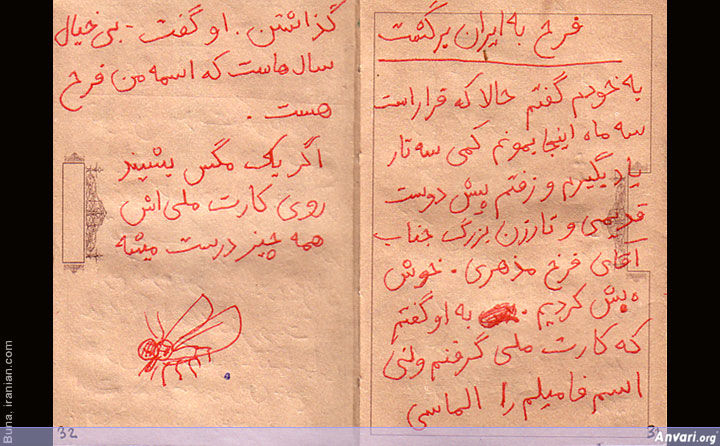 فرخ به ایران برگشت
به خودم گفتم حالا که قرار است
سه ماه اینجا بمونم کمی سه تار
یاد بگیرم و رفتم پیش دوست
قدیمی و تارزن بزرگ جناب
آقای فرخ مذهری . خوش
و بش کردیم . به او گفتم
که کارت ملی گرفتم ولی
اسم فامیلم را الماسی
گذاشتن . او گفت - بی خیال
سال هاست که اسمه من فرح
هست .
اگر یک مگس بشیند
روی کارت ملی اش
همه چیز درست میشه
32
Buna. iranian.com
Anvari.org